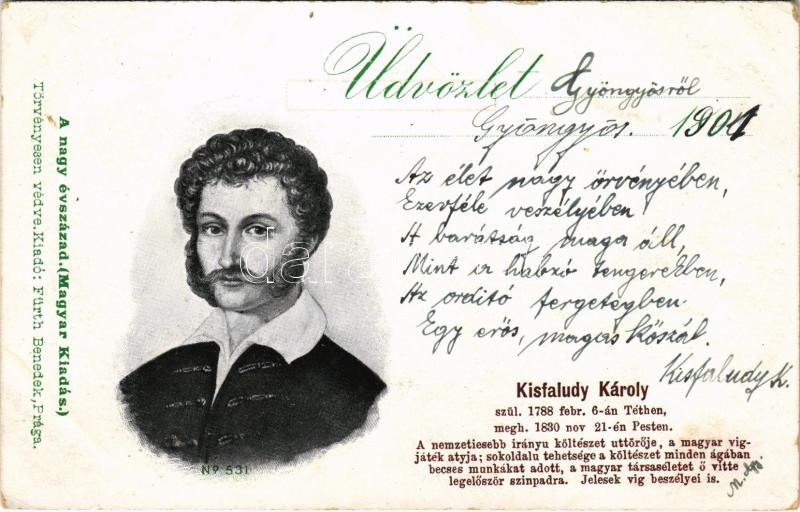 Üdvözlet Gyöngyösről
Gyöngyös. 1901
Az élet nagy örvényében,
Ezerféle veszélyében
A barátság maga áll,
Mint a habzó tengerekben,
Az orditó fergetegben
Egy erős, magas kőszál.
Kisfaludy K.
Kisfaludy Károly
szül. 1788 febr. 6-án Téthen,
megh. 1830 nov 21-én Pesten.
A nemzetiesebb irányu költészet uttörője, a magyar vig-
játék atyja; sokoldalu tehetsége a költészet minden ágában
becses munkákat adott, a magyar társaséletet ő vitte
legelőször szinpadra. Jelesek vig beszélyei is.
A nagy évszázad.(Magyar Kiadás.)
Törvényesen védve.Kiadó: Fürth Benedek,Prága.
Nº 531
darabanth